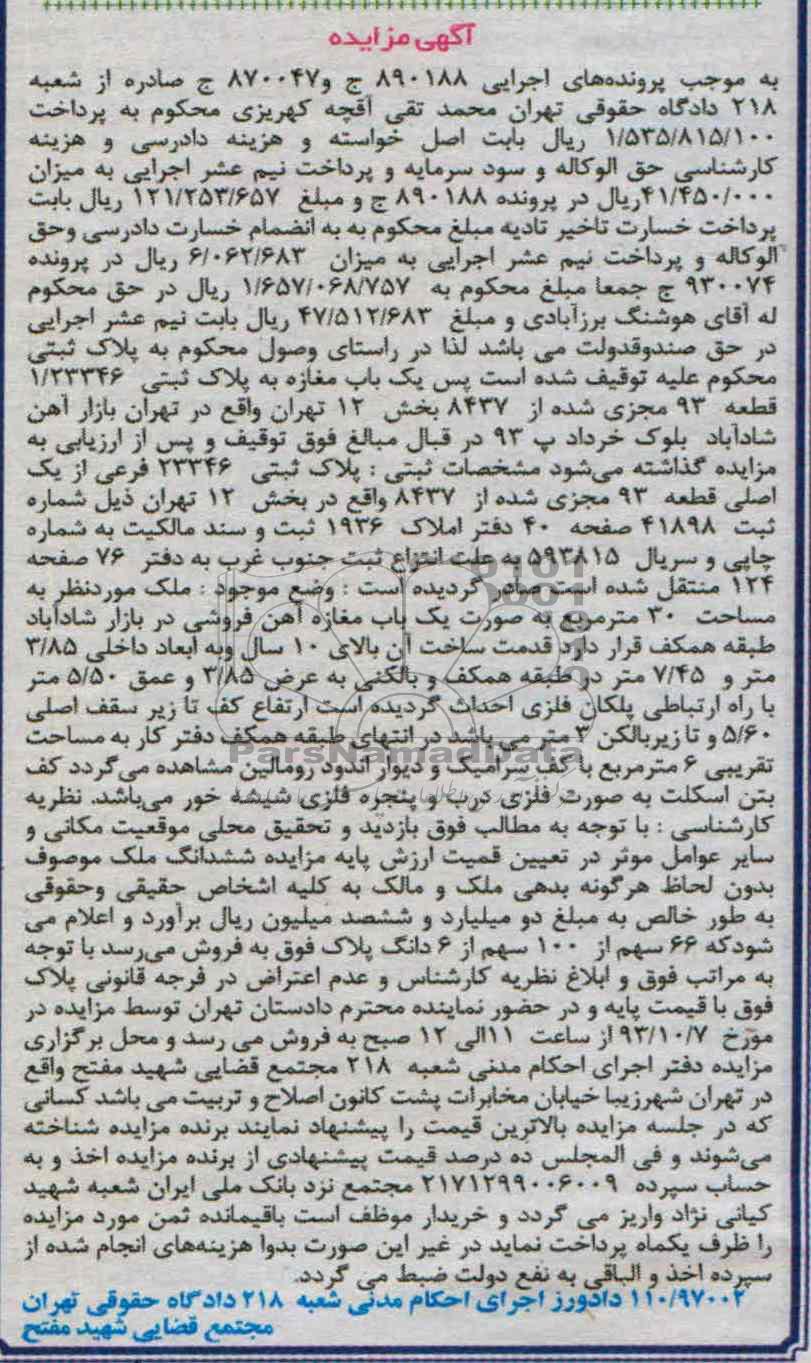 آگهی مزایده
به موجب پرونده‌های اجرایی ۸۹۰۱۸۸ ج و۸۷۰۰۴۷ ج صادره از شعبه
۲۱۸ دادگاه حقوقی تهران محمد تقی آقچه کهریزی محکوم به پرداخت
۱/۵۳۵/۸۱۵/۱۰۰ ریال بابت اصل خواسته و هزینه دادرسی و هزینه
کارشناسی حق الوکاله و سود سرمایه و پرداخت نیم عشر اجرایی به میزان
۴۱/۴۵۰/۰۰۰ریال در پرونده ۸۹۰۱۸۸ ج و مبلغ ۱۲۱/۲۵۳/۶۵۷ ریال بابت
پرداخت خسارت تاخیر تادیه مبلغ محکوم به به انضمام خسارت دادرسی وحق
الوکاله و پرداخت نیم عشر اجرایی به میزان ۶/۰۶۲/۶۸۳ ریال در پرونده
۹۳۰۰۷۴ ج جمعا مبلغ محکوم به ۱/۶۵۷/۰۶۸/۷۵۷ ریال در حق محکوم
له آقای هوشنگ برزآبادی و مبلغ ۴۷/۵۱۲/۶۸۳ ریال بابت نیم عشر اجرایی
در حق صندوقدولت می باشد لذا در راستای وصول محکوم به پلاک ثبتی
محکوم علیه توقیف شده است پس یک باب مغازه به پلاک ثبتی ۱/۲۳۳۴۶
قطعه ۹۳ مجزی شده از ۸۴۳۷ بخش ۱۲ تهران واقع در تهران بازار آهن
شادآباد بلوک خرداد پ ۹۳ در قبال مبالغ فوق توقیف و پس از ارزیابی به
مزایده گذاشته می‌شود مشخصات ثبتی : پلاک ثبتی ۲۳۳۴۶ فرعی از یک
اصلی قطعه ۹۳ مجزی شده از ۸۴۳۷ واقع در بخش ۱۲ تهران ذیل شماره
ثبت ۴۱۸۹۸ صفحه ۴۰ دفتر املاک ۱۹۳۶ ثبت و سند مالکیت به شماره
چاپی و سریال ۵۹۳۸۱۵ به علت انتزاع ثبت جنوب غرب به دفتر ۷۶ صفحه
۱۲۴ منتقل شده است صادر گردیده است : وضع موجود : ملک موردنظر به
مساحت ۳۰ مترمربع به صورت یک باب مغازه آهن فروشی در بازار شادآباد
طبقه همکف قرار دارد قدمت ساخت آن بالای ۱۰ سال وبه ابعاد داخلی ۳/۸۵
متر و ۷/۴۵ متر در طبقه همکف و بالکنی به عرض ۳/۸۵ و عمق ۵/۵۰ متر
با راه ارتباطی پلکان فلزی احداث گردیده است ارتفاع کف تا زیر سقف اصلی
۵/۶۰ و تا زیربالکن ۳ متر می باشد در انتهای طبقه همکف دفتر کار به مساحت
تقریبی ۶ مترمربع با کف سرامیک و دیوار اندود رومالین مشاهده می‌گردد کف
بتن اسکلت به صورت فلزی درب و پنجره فلزی شیشه خور می‌باشد. نظریه
کارشناسی : با توجه به مطالب فوق بازدید و تحقیق محلی موقعیت مکانی و
سایر عوامل موثر در تعیین قمیت ارزش پایه مزایده ششدانگ ملک موصوف
بدون لحاظ هرگونه بدهی ملک و مالک به کلیه اشخاص حقیقی وحقوقی
به طور خالص به مبلغ دو میلیارد و ششصد میلیون ریال برآورد و اعلام می
شودکه ۶۶ سهم از ۱۰۰ سهم از ۶ دانگ پلاک فوق به فروش می‌رسد با توجه
به مراتب فوق و ابلاغ نظریه کارشناس و عدم اعتراض در فرجه قانونی پلاک
فوق با قیمت پایه و در حضور نماینده محترم دادستان تهران توسط مزایده در
مورخ ۹۳/۱۰/۷ از ساعت ۱۱الی ۱۲ صبح به فروش می رسد و محل برگزاری
مزایده دفتر اجرای احکام مدنی شعبه ۲۱۸ مجتمع قضایی شهید مفتح واقع
در تهران شهرزیبا خیابان مخابرات پشت کانون اصلاح و تربیت می باشد کسانی
که در جلسه مزایده بالاترین قیمت را پیشنهاد نمایند برنده مزایده شناخته
می‌شوند و فی المجلس ده درصد قیمت پیشنهادی از برنده مزایده اخذ و به
حساب سپرده ۲۱۷۱۲۹۹۰۰۶۰۰۹ مجتمع نزد بانک ملی ایران شعبه شهید
کیانی نژاد واریز می گردد و خریدار موظف است باقیمانده ثمن مورد مزایده
را ظرف یکماه پرداخت نماید در غیر این صورت بدوا هزینه‌های انجام شده از
سپرده اخذ و الباقی به نفع دولت ضبط می گردد.
۱۱۰/۹۷۰۰۲ دادورز اجرای احکام مدنی شعبه ۲۱۸ دادگاه حقوقی تهران
مجتمع قضایی شهید مفتح
ParsNamadData